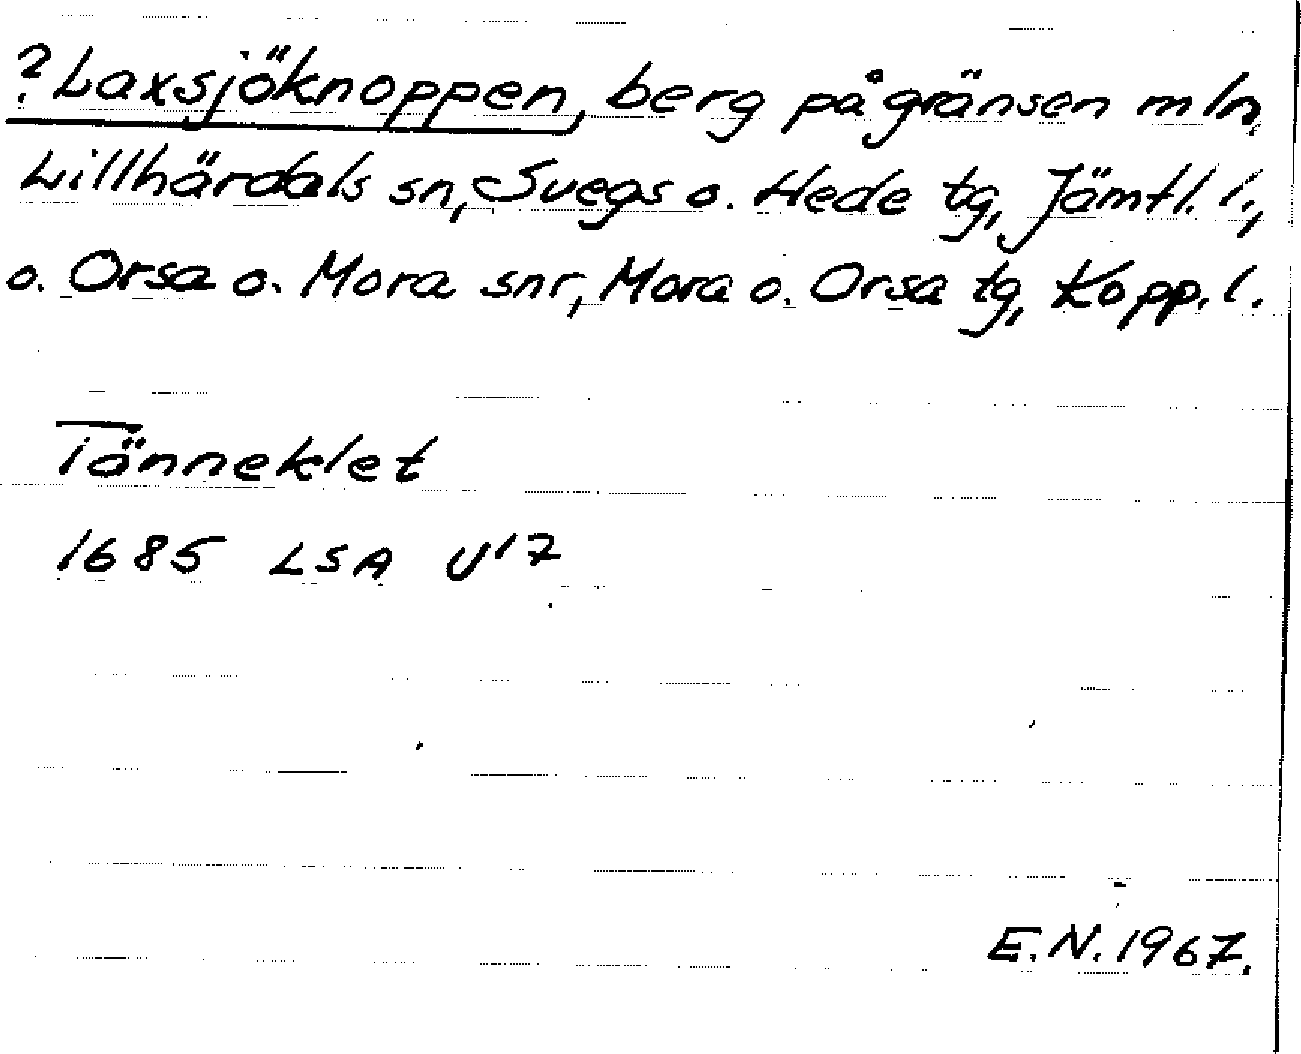 ? Laxsjöknoppen, berg på gränsen mln
Lillhärdals sn, Svegs o. Hede tg, Jämtl. l.,
o. Orsa o. Mora snr, Mora o. Orsa tg, Kopp. l.
Tänneklet
1685 LSA U17
E.N. 1967.